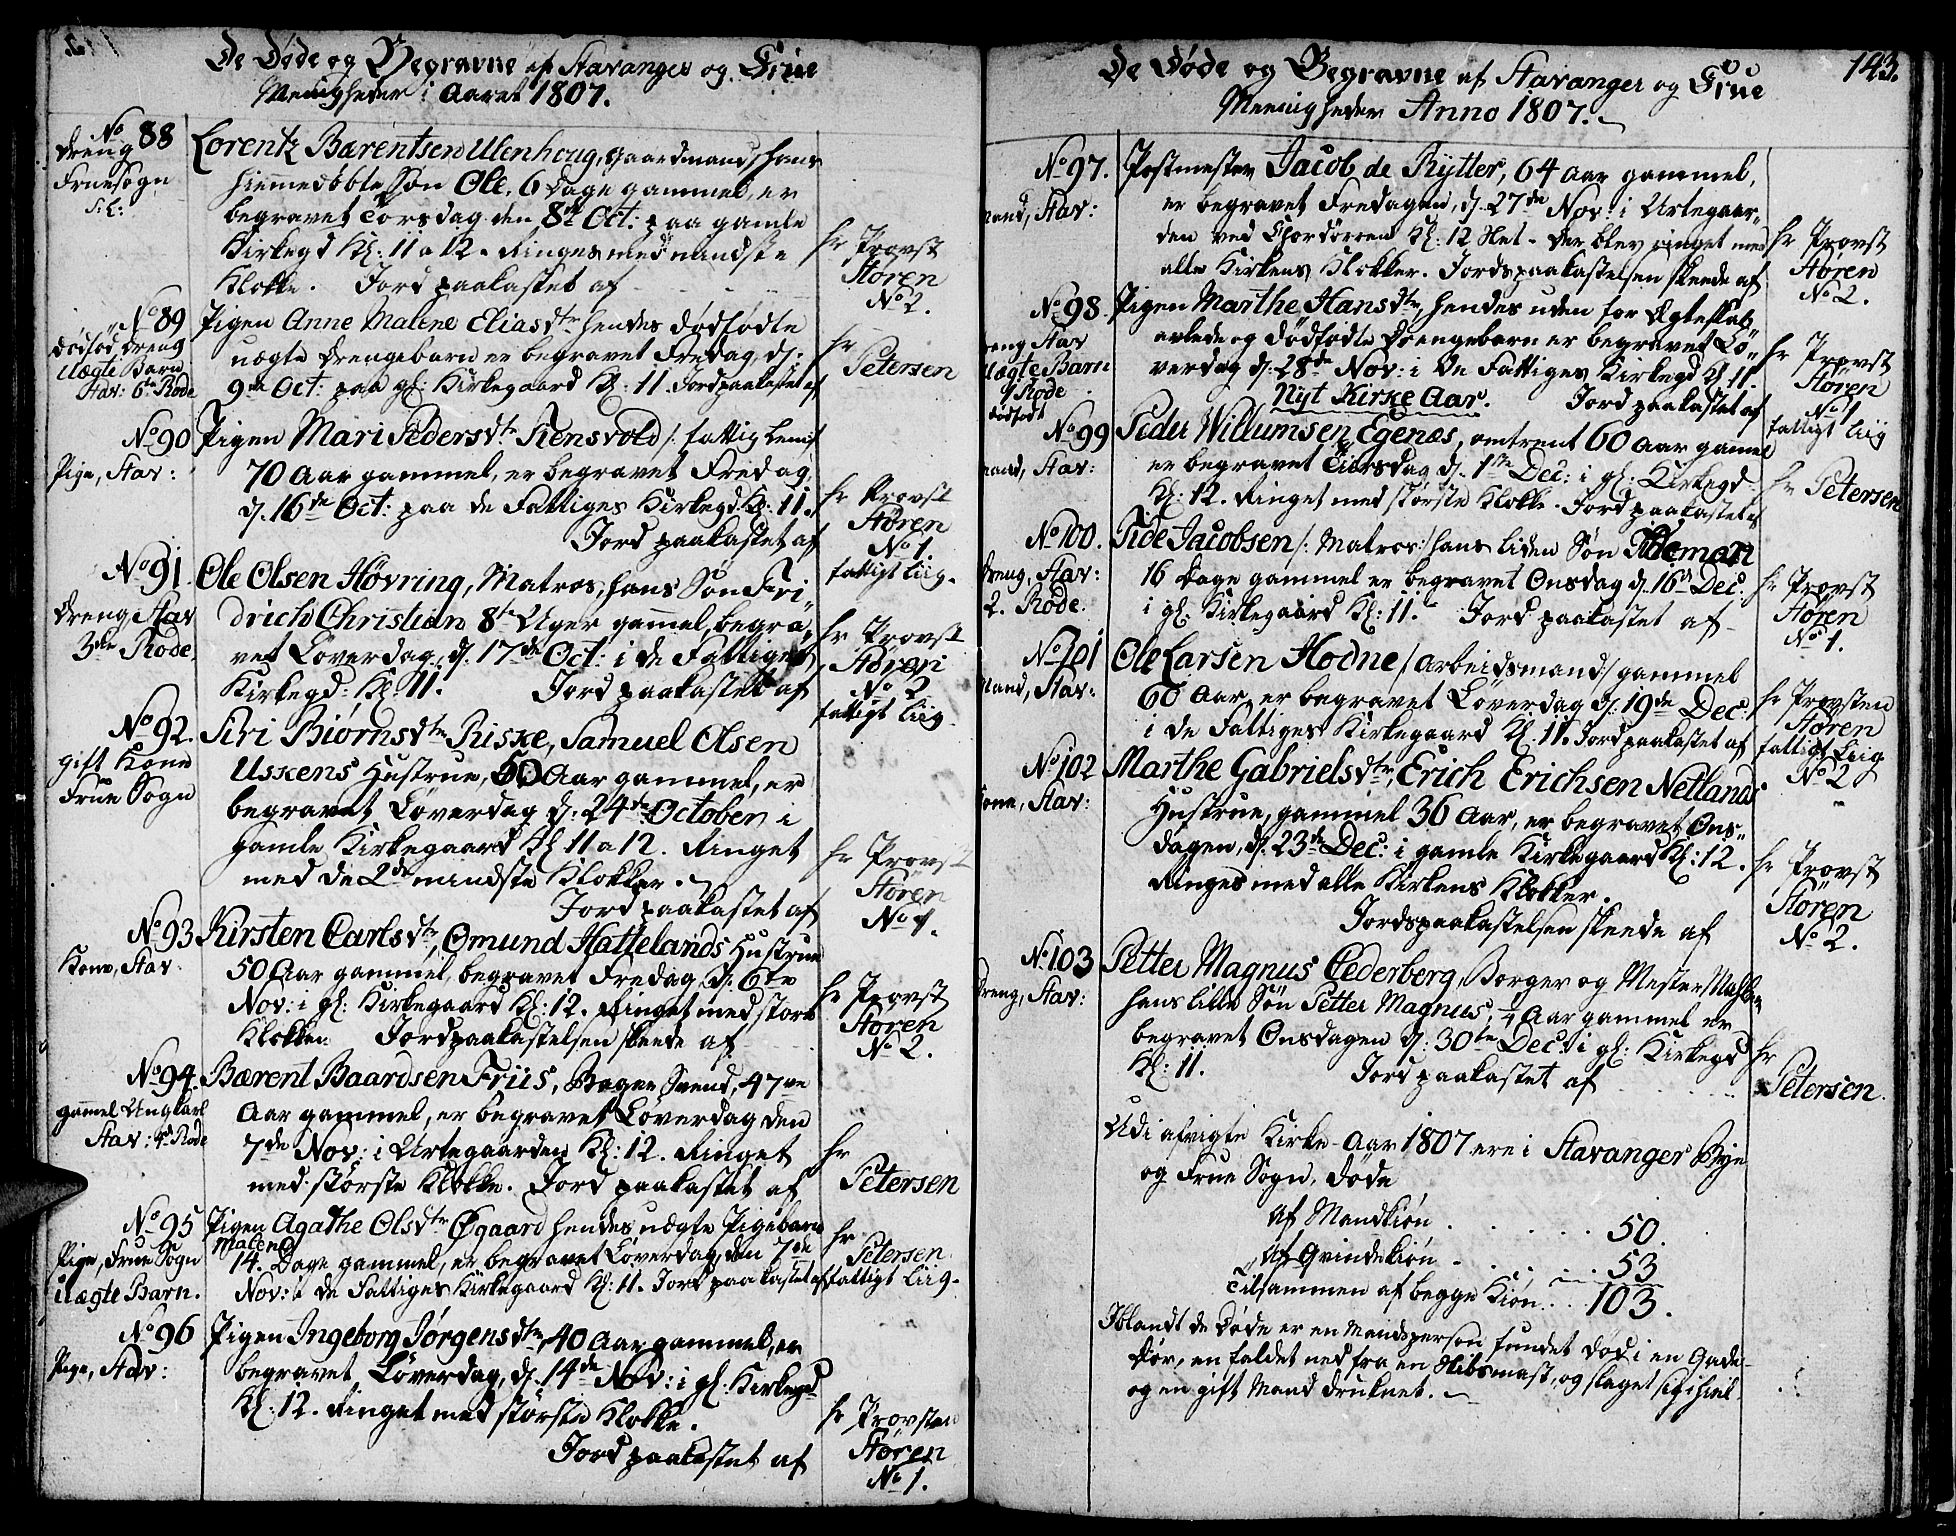 De Døde og Begravne af Stavanger og Frue
Menigheder i Aaret 1807.
No 88
Dreng
Frue Sogn
Lorentz Bærentsen Ulenhoug, Gaardmand, hans
hiemedøbte Søn Ole, 6 Dage gammel, er
begravet Torsdag den 8de Oct: paa gamle
Kirkegd Kl: 11 a 12. Ringes med mindste
Klokke. Jord paakastet af
hr Provst
Støren
No 2.
No 89
Dødfød Dreng
Uægte Barn
Stav: 6te Rode
Pigen Anne Malene Eliasdtr hendes dødfødte
uægte Drengebarn er begravet Fredag, d:
9de Oct: paa gl: Kirkegaard Kl: 11. Jordpaakastet af
hr
Petersen
No 90
Pige, Stav:
Pigen Mari Pedersdtr Kensvold /: fattig Lem :/
70 Aar gammel, er begravet Fredag,
d. 16de Oct: paa de Fattiges Kirkegd Kl: 11.
Jord paakastet af
hr Provst
Støren
No 1.
fattigt Liig.
No 91.
Dreng Stav
3die Rode.
Ole Olsen Høvring, Matros, hans Søn Fri„
drich Christian 8te Uger gamel, begra„
vet Løverdag, d. 17de Oct: i de Fattiges
Kirkegd: Kl: 11. Jord paakastet af
hr Provst
Støren
No 2
fattigt Liig.
No 92.
gift Kone
Frue Sogn
Siri Biørnsdtr Riske, Samuel Olsen
Uskens Hustrue, 50 Aar gammel, er
begravet Løverdag d: 24de October i
gamle Kirkegaard Kl 11 a 12. Ringet
med de 2de mindste Klokker.
Jord paakastet af
hr Provst
Støren
No 1.
No 93
Kone, Stav:
Kirsten Carlsdtr, Omund Hattelands Hustrue
50 Aar gammel, begravet Fredag d: 6te
Nov: i gl: Kirkegaard Kl: 12. Ringet med store
Klokken Jordpaakastelsen skeede af
hr Provst
Støren
No 2.
No 94.
gamel Ungkarl
Stav: 4de Rode
Bærent Baardsen Friis, Bager Svend, 47ve
Aar gammel, er begravet Løverdag den
7de Nov: i Urtegaarden Kl: 12. Ringet
med største Klokke. Jord paakastet af
hr
Petersen
No 95
Pige, Frue Sogn
Uægte Barn.
Pigen Agathe Olsdtr Øgaard hendes uægte Pigebarn
Malene
14. Dage gammel, er begravet Løverdag den 7de
Nov: i de Fattiges Kirkegaard Kl: 11. Jord paakastet af
hr
Petersen
fattigt Liig.
No 96
Pige, Stav:
Pigen Ingeborg Jørgensdtr, 40 Aar gammel, er
begravet, Løverdag, d. 14de Nov: i gl: Kirkegd
Kl: 12. Ringet med største Klokke.
Jord paakastet af
hr Provsten
Støren
No 1.
143.
De Døde og Begravne af Stavanger og Frue
Menigheder Anno 1807.
No 97.
mand, Stav:
Postmester Jacob de Rytter, 64 Aar gammel,
er begravet Fredagen, d. 27de Nov: i Urtegaar„
den ved Chordørren Kl: 12 Slet. Der blev ringet med
alle Kirkens Klokker. Jordspaakastelsen skeede af
hr Provst
Støren
No 2.
No 98.
Dreng Stav
Uægte Barn
4 Rode
dødfødt
Pigen Marthe Hansdtr, hendes uden for Ægteskab
avlede og dødfødte Drengebarn er begravet Lø„
verdag d: 28de Nov: i De Fattiges Kirkegd Kl 11.
Jord paakastet af
hr Provst
Støren
No 1
fattigt Liig
Nyt Kirke Aar.
No 99
mand, Stav:
Peder Willumsen Egenæs, omtrent 60 Aar gamel
er begravet Tiirsdag d. 1ste Dec: i gl: Kirkegd
Kl: 12. Ringet med største Klokke. Jord paakastet af
hr Petersen
No 100.
Dreng, Stav:
2. Rode.
Tide Jacobsen /: Matros :/ hans liden Søn Tideman
16 Dage gammel er begravet Onsdag d. 16de Dec:
i gl: Kirkegaard Kl: 11. Jord paakastet af
hr Provst
Støren
No 1.
No 101
Mand, Stav:
Ole Larsen Hodne /: Arbeidsmand :/ gammel
60 Aar, er begravet Løverdag d. 19de Dec:
i de Fattiges Kirkegaard Kl. 11. Jord paakastet af
hr Provsten
Støren
fattigt Liig
No 2
No 102
Kone, Stav:
Marthe Gabrielsdtr, Erich Erichsen Netlands
Hustrue, gammel 36 Aar, er begravet Ons„
dagen, d. 23de Dec: i gamle Kirkegaard Kl: 12.
Ringes med alle Kirkens Klokker.
Jordspaakastelsen skeede af
hr Provst
Støren
No 2.
No 103
Dreng, Stav:
Petter Magnus Cederberg, Borger og Mester
hans lille Søn Petter Magnus, 1/4 Aar gammel er
begravet Onsdagen d. 30te Dec: i gl: Kirkegd
Kl: 11. Jord paakastet af
hr
Petersen.
Udi afvigte Kirke-Aar 1807 ere i Stavanger Bye
og Frue Sogn, døde
Af Mandkiøn . . . . 50.
Af Qvindekiøn . . . . 53
Tilsammen af begge Kiøn . . 103.
Iblandt de Døde er en Mandsperson fundet død i en Gade-
Dør, en faldet ned fra en Skibsmast, og slaget sig ihiel.
og en gift Mand druknet.